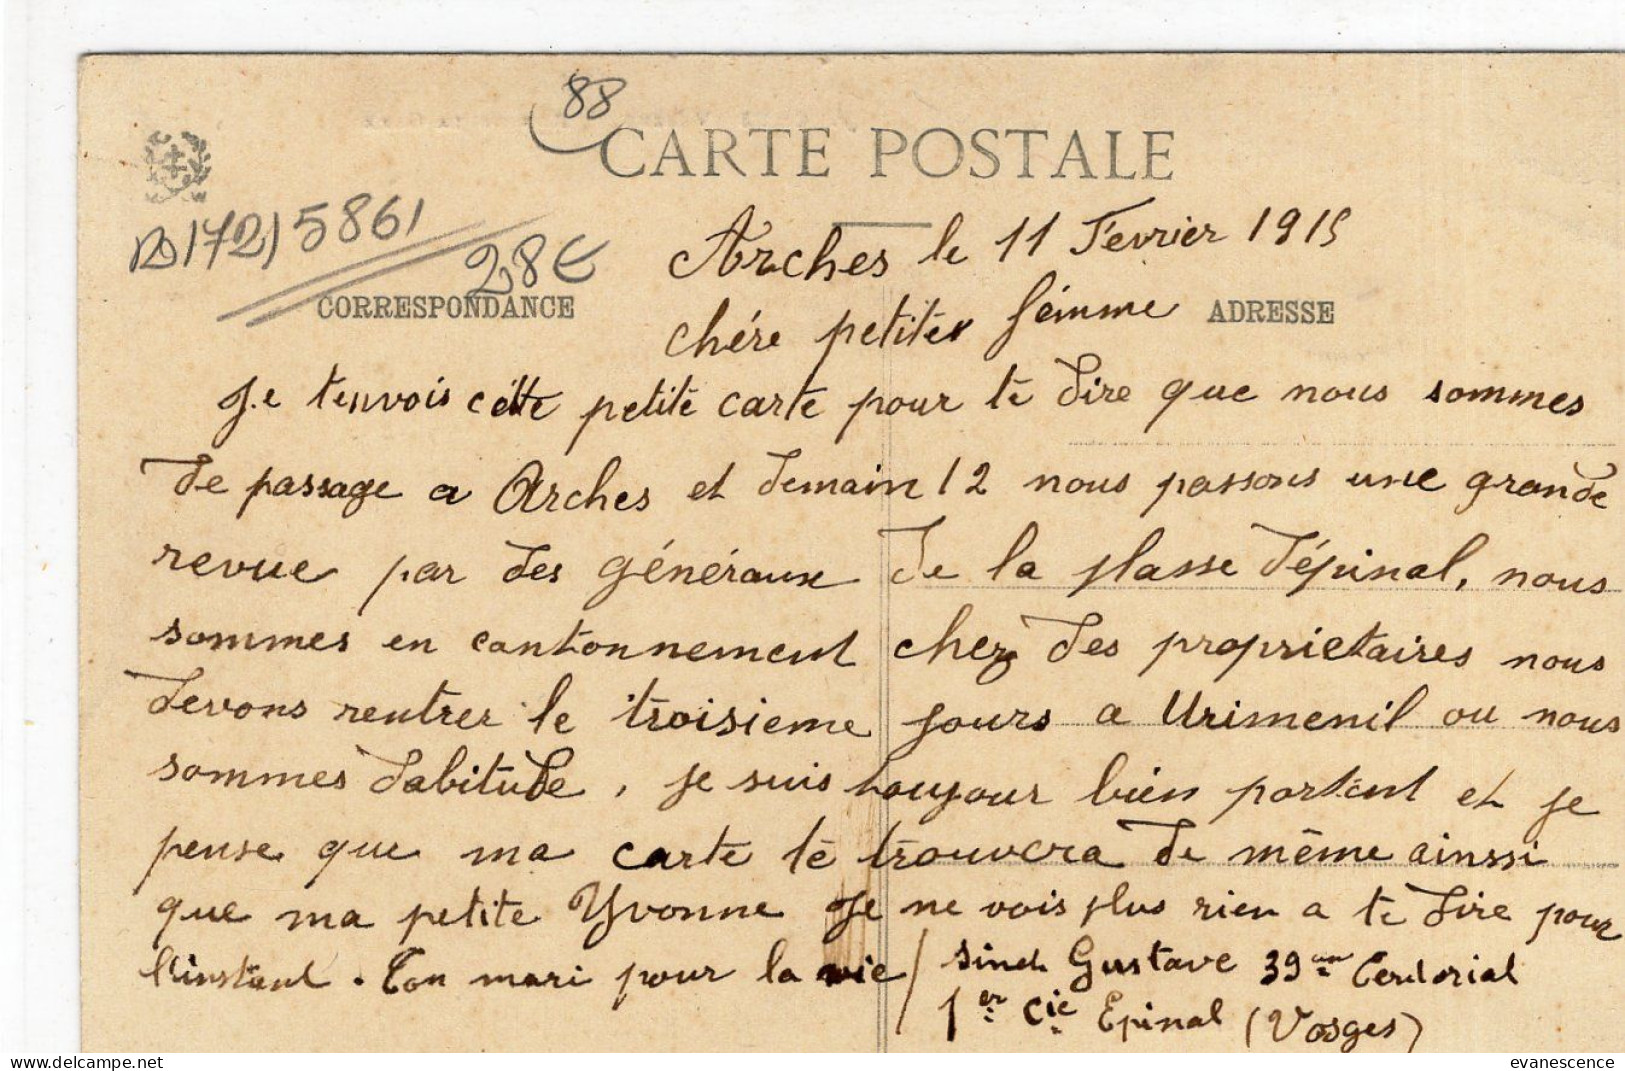 88
CARTE POSTALE
28€
Arches le 11 Fevrier 1915
CORRESPONDANCE
chére petite fémme
ADRESSE
Je t'envois cette petite carte pour te dire que nous sommes
de passage a Arches et demain 12 nous passons une grande
revue par des généraux de la plasse d'épinal, nous
sommes en cantonnement chez des proprietaires nous
devons rentrer le troisieme jours a Urimenil ou nous
sommes d'abitude, je suis toujour bien portant et je
pense que ma carte te trouvera de même ainssi
que ma petite Yvonne Je ne vois plus rien a te dire pour
l'instant. Ton mari pour la vie / Gustave 39em Territorial
1er Cie Epinal (Vosges)
evanescence